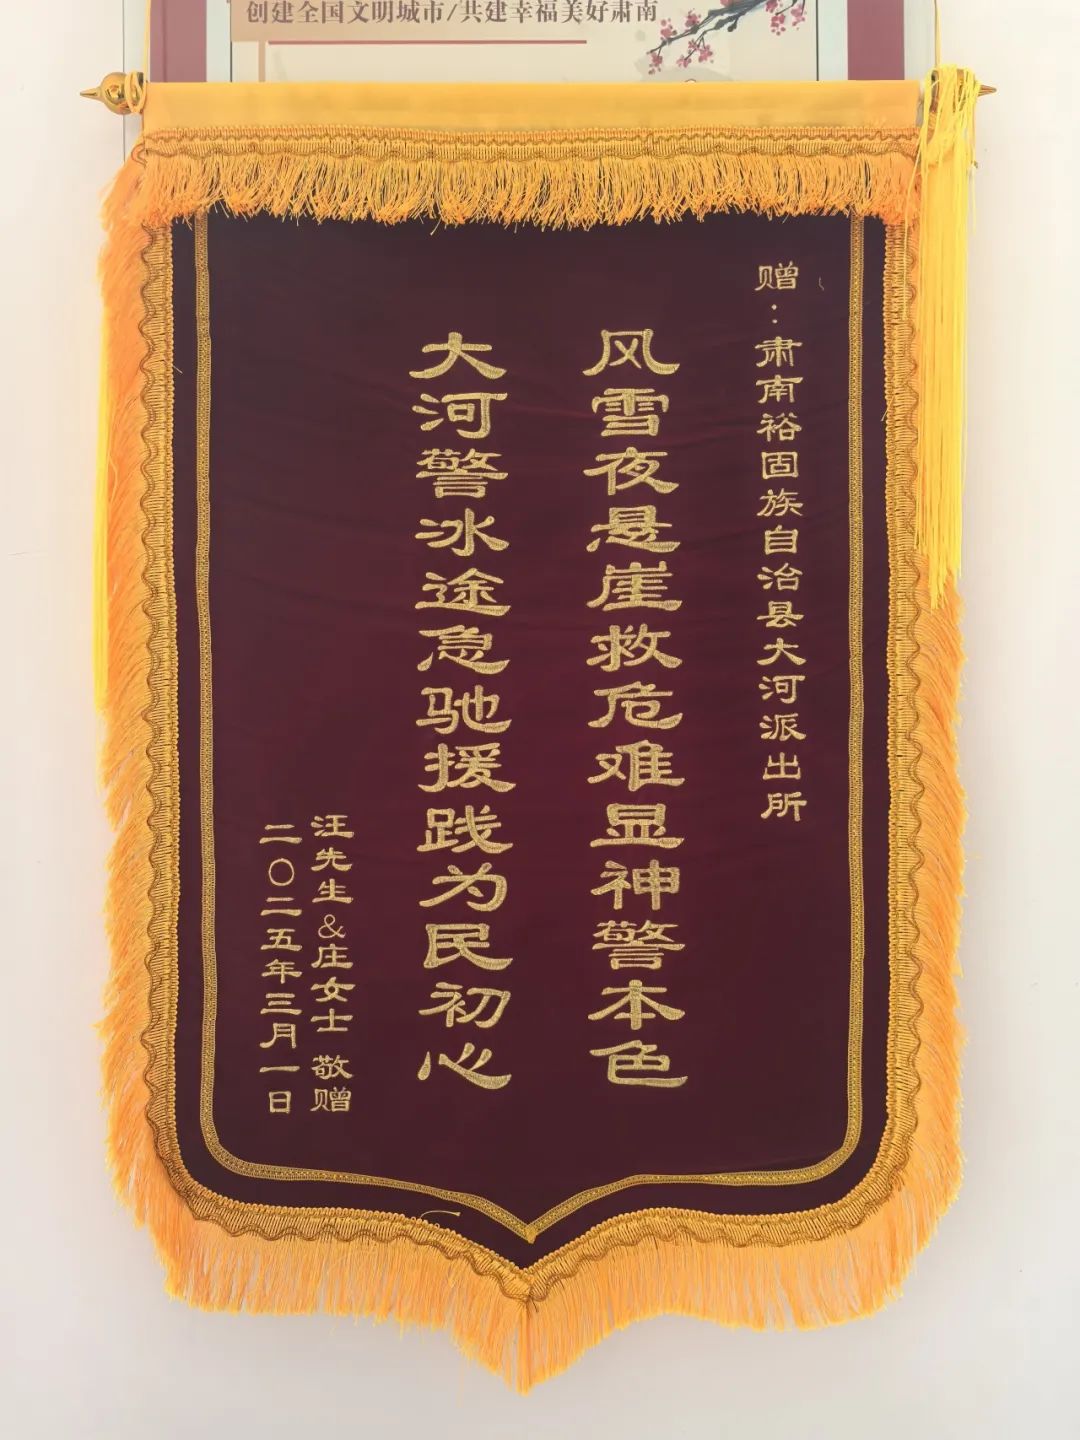 创建全国文明城市/共建幸福美好肃南
赠：肃南裕固族自治县大河派出所
风雪夜悬崖救危难显神警本色
大河警冰途急驰援践为民初心
汪先生&庄女士 敬赠
二〇二五年三月一日